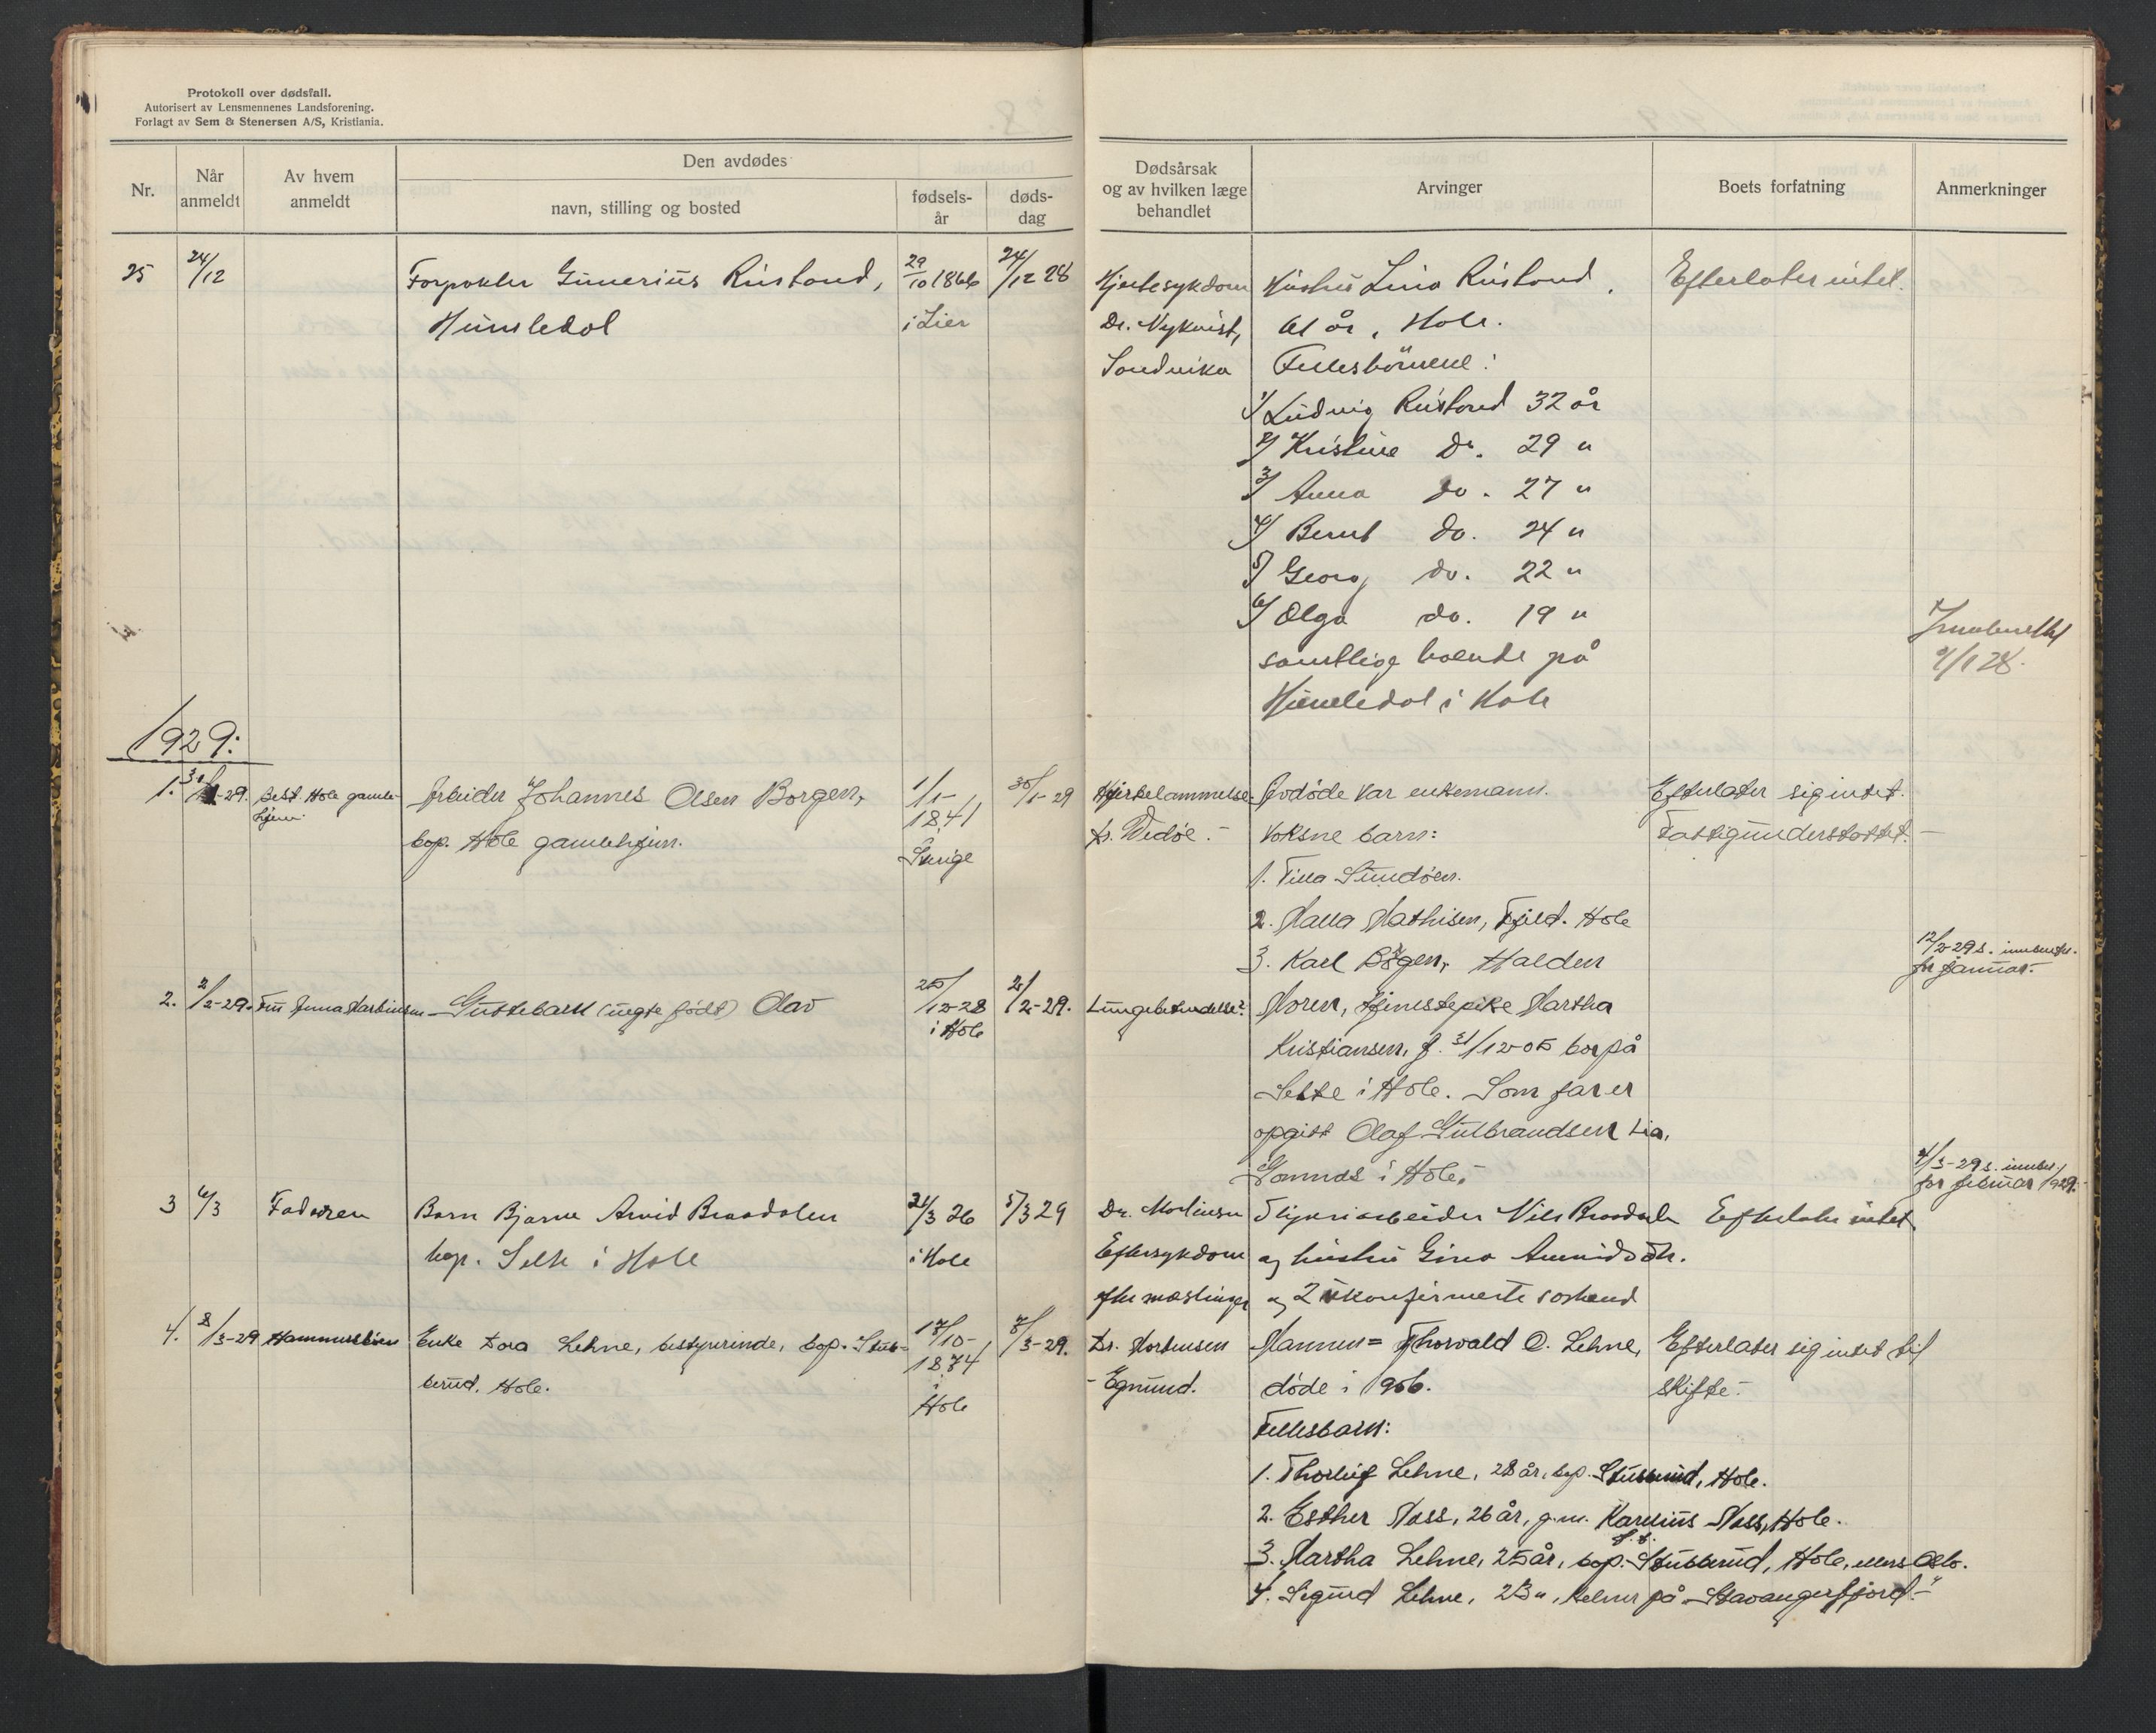 Protokoll over dødsfall.
Autorisert av Lensmennenes Landsforening.
Forlagt av Sem & Stenersen A/S, Kristiania.
Nr.
Når anmeldt
Av hvem anmeldt
Den avdødes
navn, stilling og bosted
fødsels-år
døds-dag
Dødsårsak og av hvilken læge behandlet
Arvinger
Boets forfatning
Anmerkninger
25 24/12 Forpakter Gunerius Rustand, 29/10 1866 24/12 28 Hjertesykdom Hustru Lina Rustand, Efterlater intet.
i Lier Dr. Nykvist, 61 år, Hole.
Sandvika Fellesbørnene:
1/ Ludvig Rustand 32 år
2/ Kristine Do. 29 "
3/ Anna do. 27 "
4/ Bernt do. 24 "
5/ Georg do. 22 "
6/ Olga do. 19 "
samtlige boende på
i Hole
1929:
1. 30/1-29. Best. Hole gamle- Arbeider Johannes Olsen Borgen, 1/1- 30/1-29 Hjertelammelse. Avdøde var enkemann. Efterlater sig intet.
hjem. bop. Hole gamlehjem. 1841 Dr. Wedøe.- Voksne barn: Fattigunderstøttet.-
Sverige 1. Tina Sundøen.
2. Mathisen, Fjeld. Hole
3. Karl Borgen, Halden 12/2-29 s. innberettn.
for januar.
2. 2/2-29. Fru Anna Martinsen Guttebarn (uegte født) Olav 25/12-28 2/2-29. Lungebetendelse? Moren, tjenestepike Martha
i Hole Kristiansen, f. 31/12-05 bor på
Selte i Hole. Som far er
opgitt Olaf Gulbrandsen Lia,
Gomnæs i Hole.- 4/3-29 s. innber.
for februar 1929.-
3 6/3 Faderen Barn Bjarne Arvid Braadalen 21/3 26 5/3 29 Dr. Mortensen Nils Efterlater intet
bop. Selte i Hole i Hole Eftersykdom og hustru Gina
efter mæslinger og 2 ukonfirmerte søskend
4. 8/3-29 Enke Dora Lehne, bestyrerinde, bop. Stub- 17/10- 7/3-29. Dr. Mortensen Mannen = Thorvald O. Lehne, Efterlater sig intet til
berud, Hole. 1874 -Egnund. døde i 1906. skifte.-
i
Hole
Fellesbarn:
1. Thorleif Lehne, 28 år, bop. Stubberud, Hole.
2. Esther Moss, 26 år, g.m. Karelius Moss, Hole.
3. Martha Lehne, 25 år, bop. Stubberud, Hole, Oslo.
4. Sigurd Lehne, 23 ", kelner på "Stavangerfjord".-